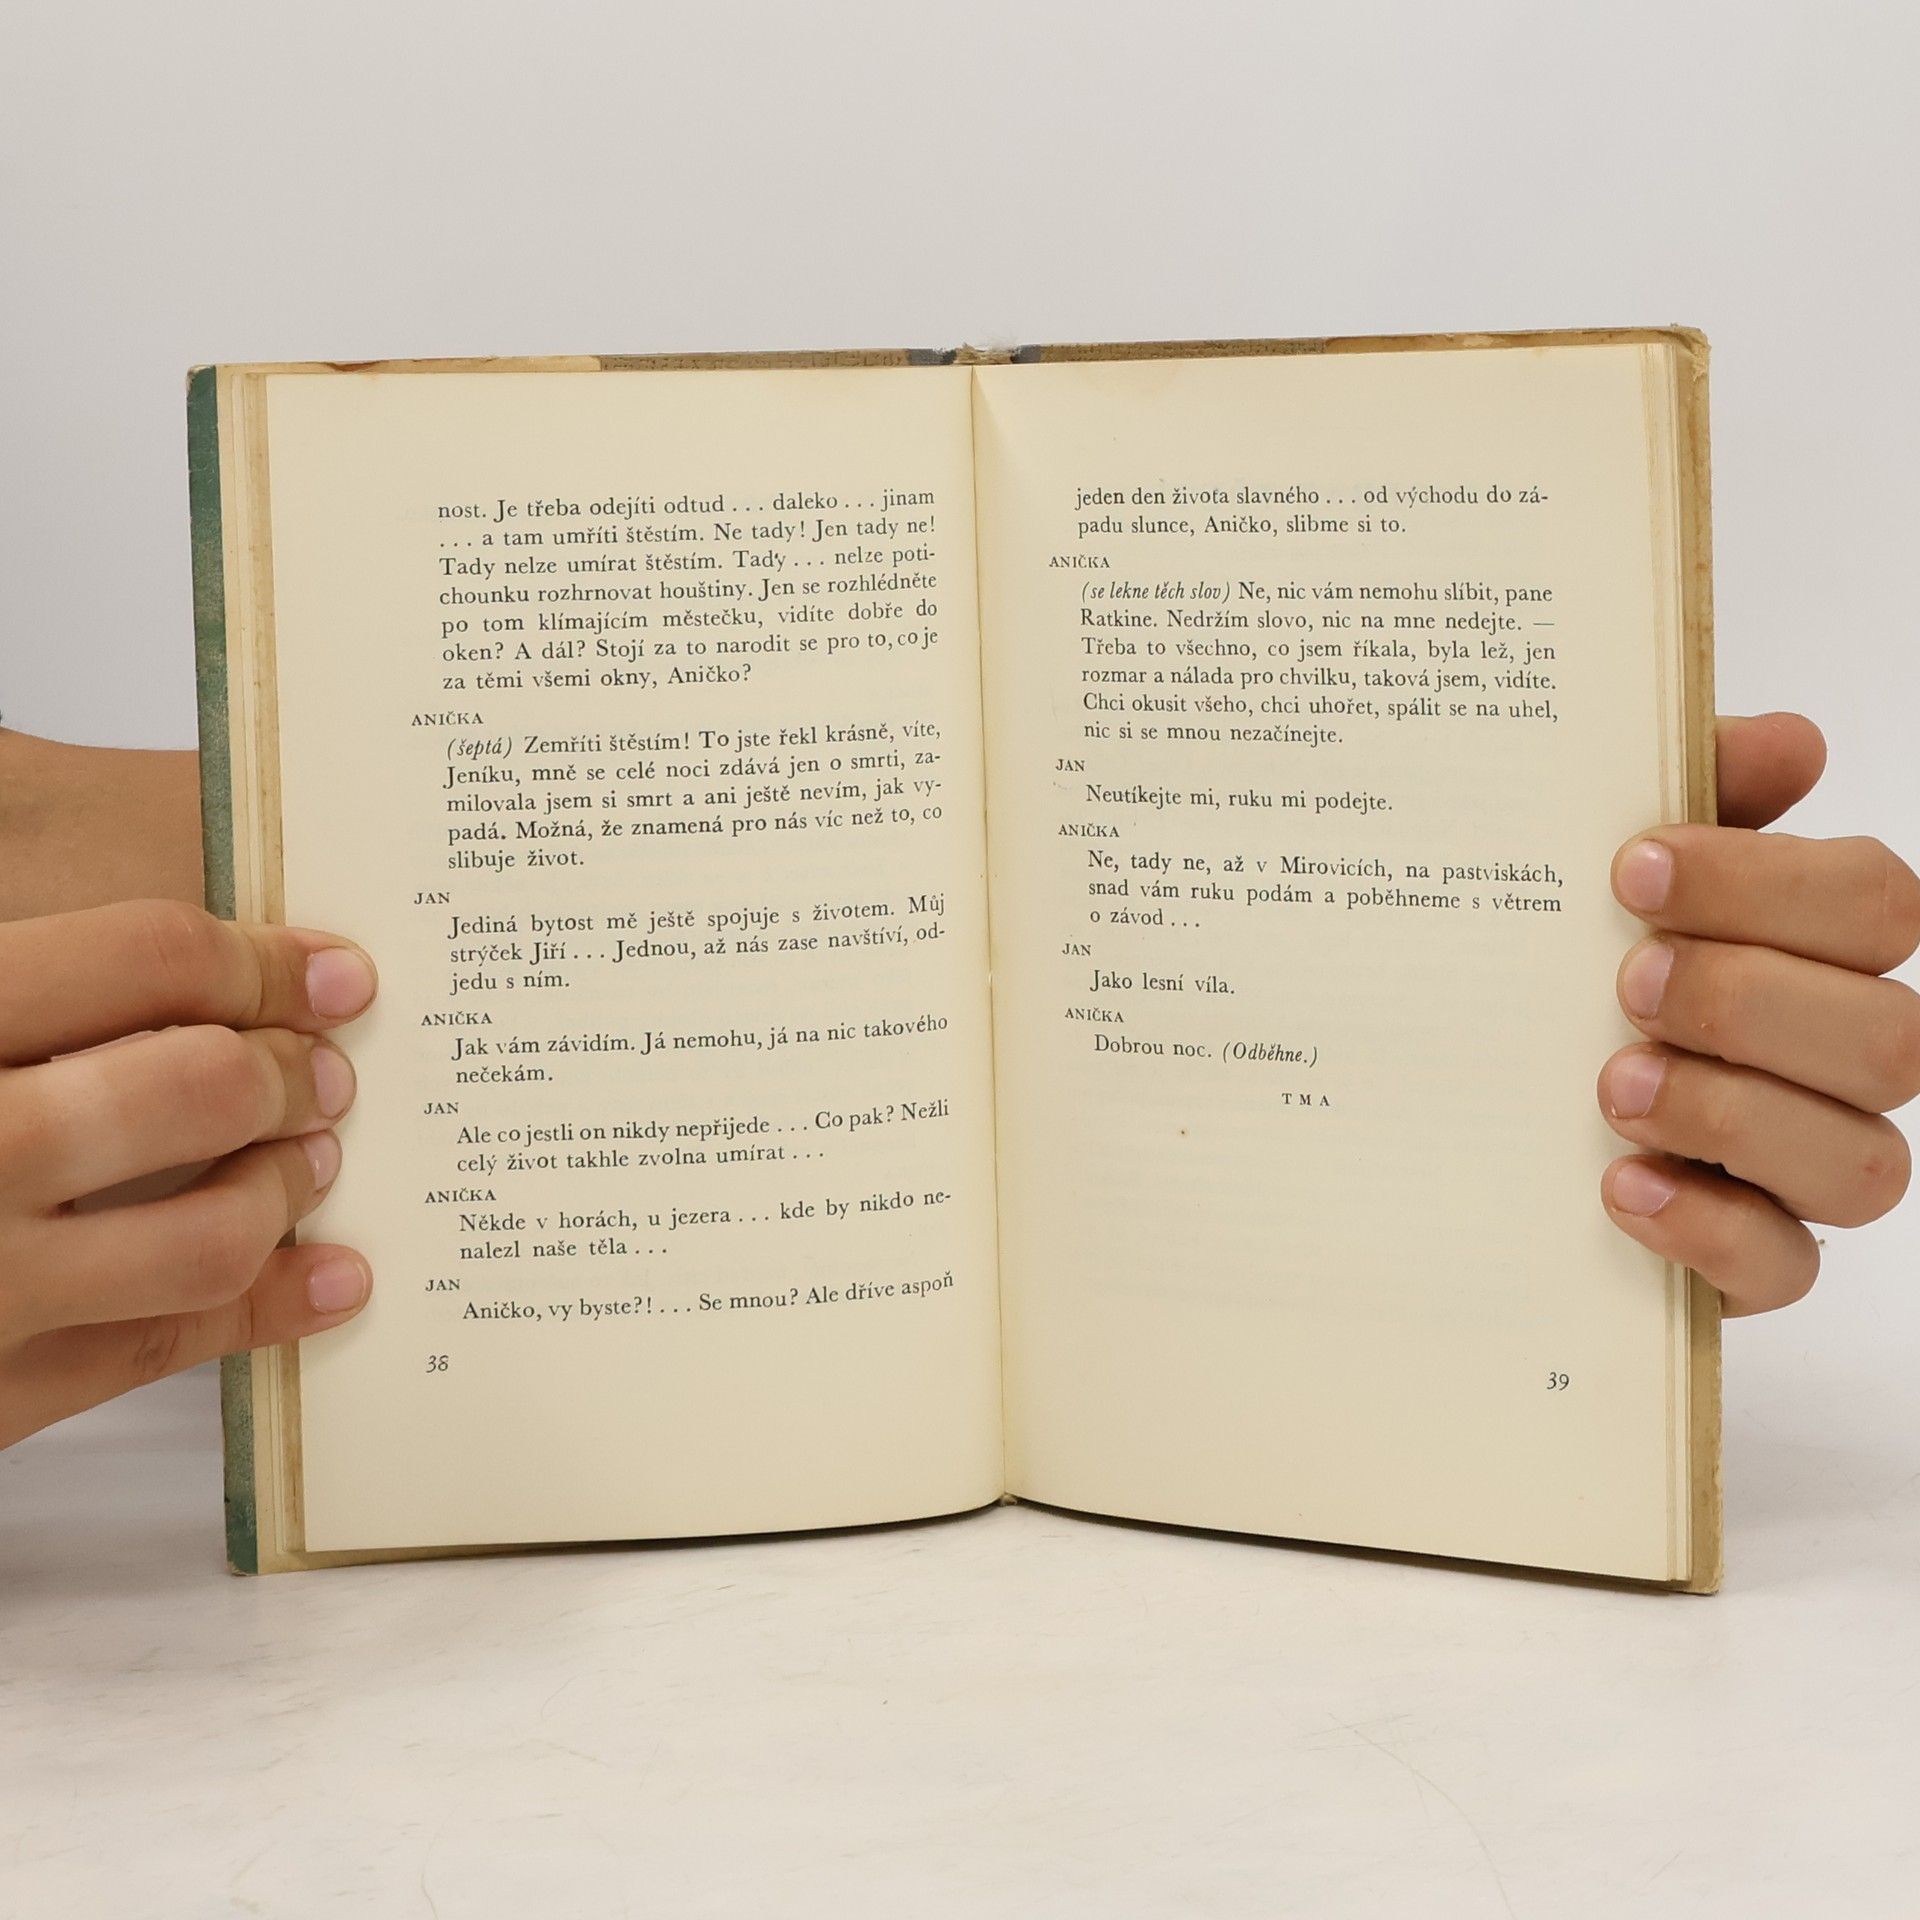 nost. Je třeba odejíti odtud . . . daleko . . . jinam
. . . a tam umříti štěstím. Ne tady! Jen tady ne!
Tady nelze umírat štěstím. Tady . . . nelze poti-
chounku rozhrnovat houštiny. Jen se rozhlédněte
po tom klímajícím městečku, vidíte dobře do
oken? A dál? Stojí za to narodit se pro to, co je
za těmi všemi okny, Aničko?
ANIČKA
(šeptá) Zemříti štěstím! To jste řekl krásně, víte,
Jeníku, mně se celé noci zdává jen o smrti, za-
milovala jsem si smrt a ani ještě nevím, jak vy-
padá. Možná, že znamená pro nás víc než to, co
slibuje život.
JAN
Jediná bytost mě ještě spojuje s životem. Můj
strýček Jiří . . . Jednou, až nás zase navštíví, od-
jedu s ním.
ANIČKA
Jak vám závidím. Já nemohu, já na nic takového
nečekám.
JAN
Ale co jestli on nikdy nepřijede . . . Co pak? Nežli
celý život takhle zvolna umírat . . .
ANIČKA
Někde v horách, u jezera . . . kde by nikdo ne-
nalezl naše těla . . .
JAN
Aničko, vy byste?! . . . Se mnou? Ale dříve aspoň
38
jeden den života slavného . . . od východu do zá-
padu slunce, Aničko, slibme si to.
ANIČKA
(se lekne těch slov) Ne, nic vám nemohu slíbit, pane
Ratkine. Nedržím slovo, nic na mne nedejte. —
Třeba to všechno, co jsem říkala, byla lež, jen
rozmar a nálada pro chvilku, taková jsem, vidíte.
Chci okusit všeho, chci uhořet, spálit se na uhel,
nic si se mnou nezačínejte.
JAN
Neutíkejte mi, ruku mi podejte.
ANIČKA
Ne, tady ne, až v Mirovicích, na pastviskách,
snad vám ruku podám a poběhneme s větrem
o závod . . .
JAN
Jako lesní víla.
ANIČKA
Dobrou noc. (Odběhne.)
TMA
39